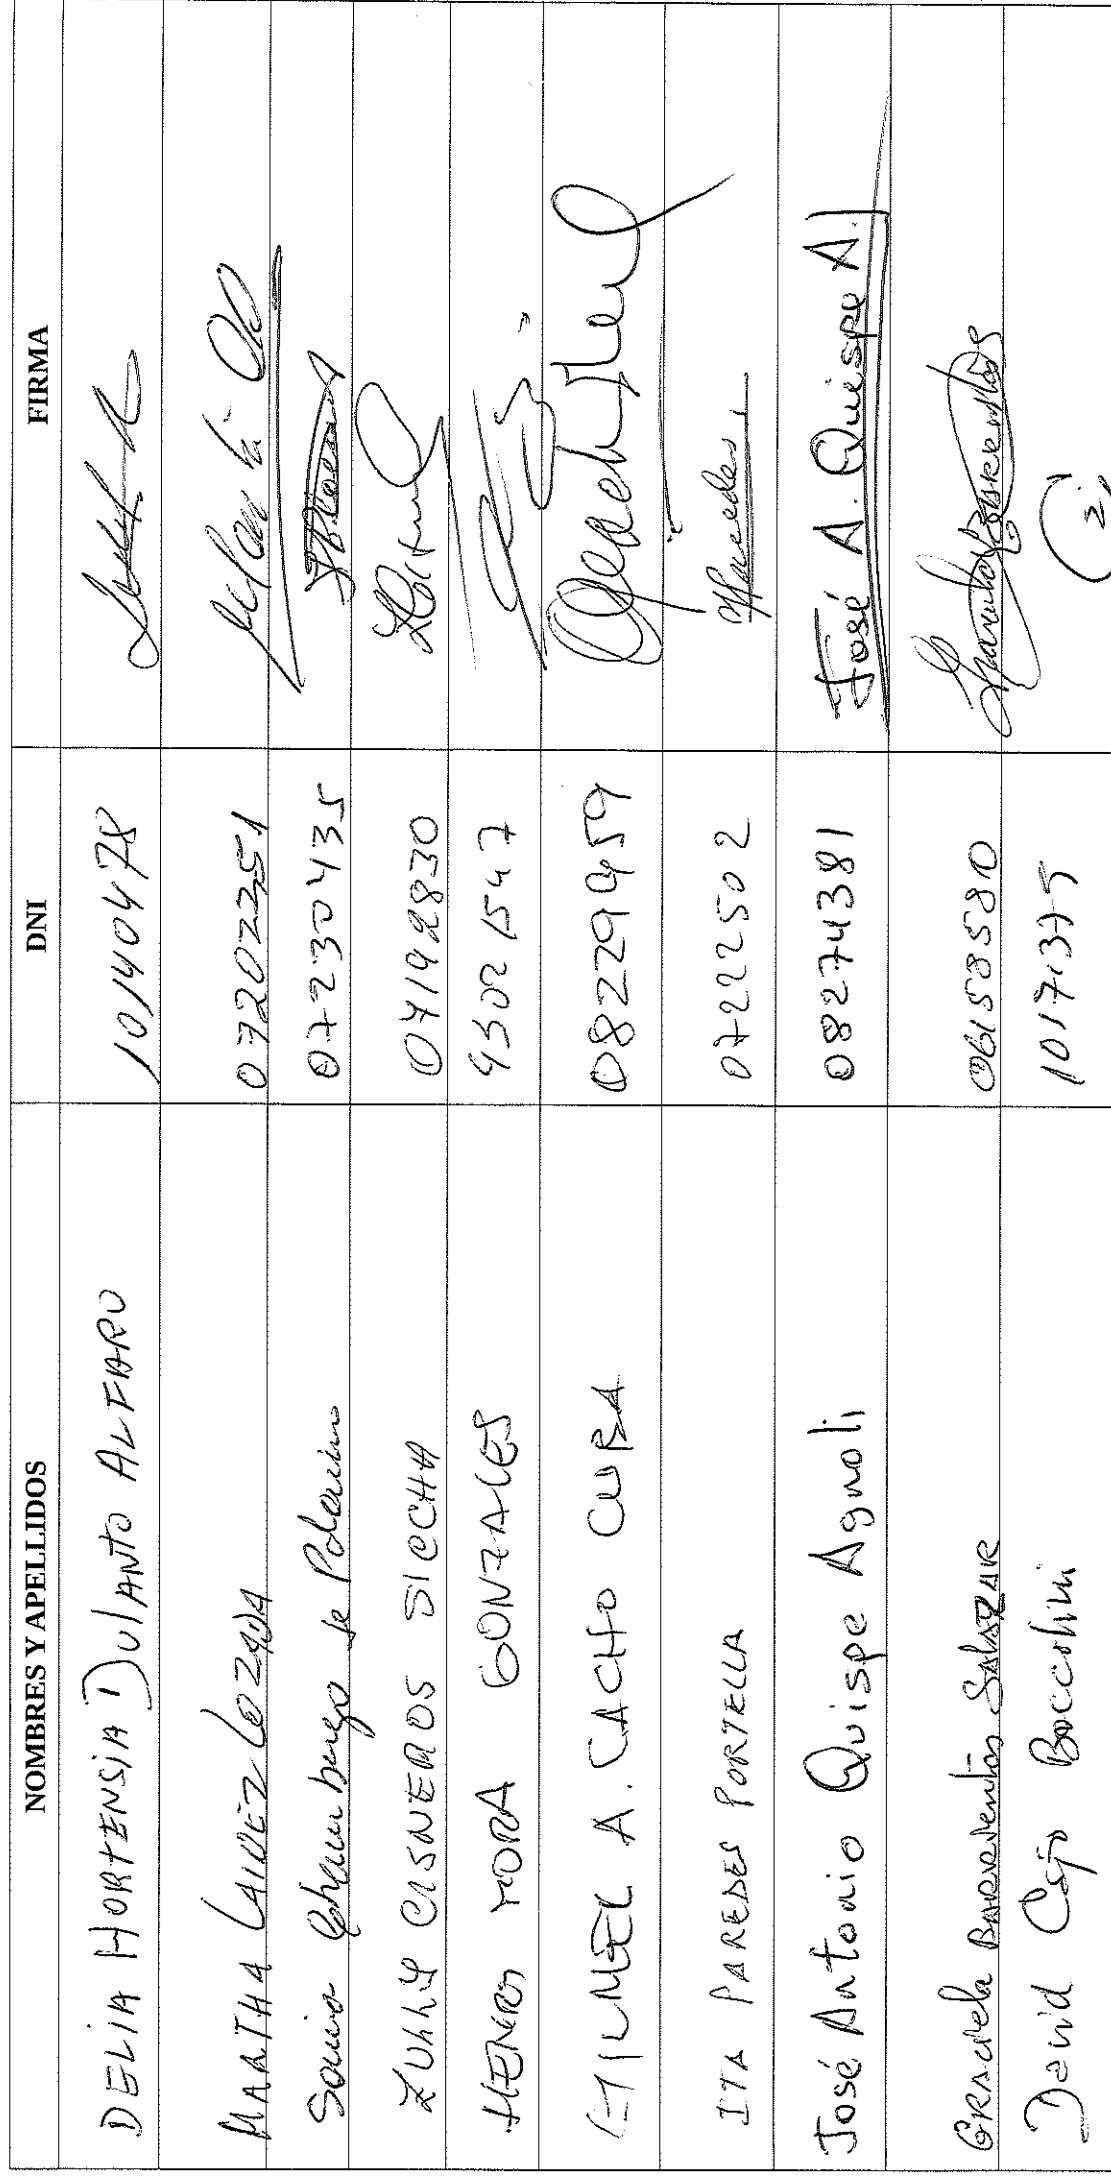 NOMBRES Y APELLIDOS DNI FIRMA
DELIA HORTENSIA DULANTO ALFARO 10140478
MARTHA LAINEZ LOZADA 07202251
Sonia de Palomino 07230435
ZULLY CISNEROS SICCHA 07192830
HENRY MORA GONZALES 43021547
A. CACHO CUBA 08229459
ITA PAREDES PORTELLA 07222502 Paredes
José Antonio Quispe Agnoli 08274381 José A. Quispe A.
GRACIELA BARRIENTOS SALAZAR 06158580
David Boccolini